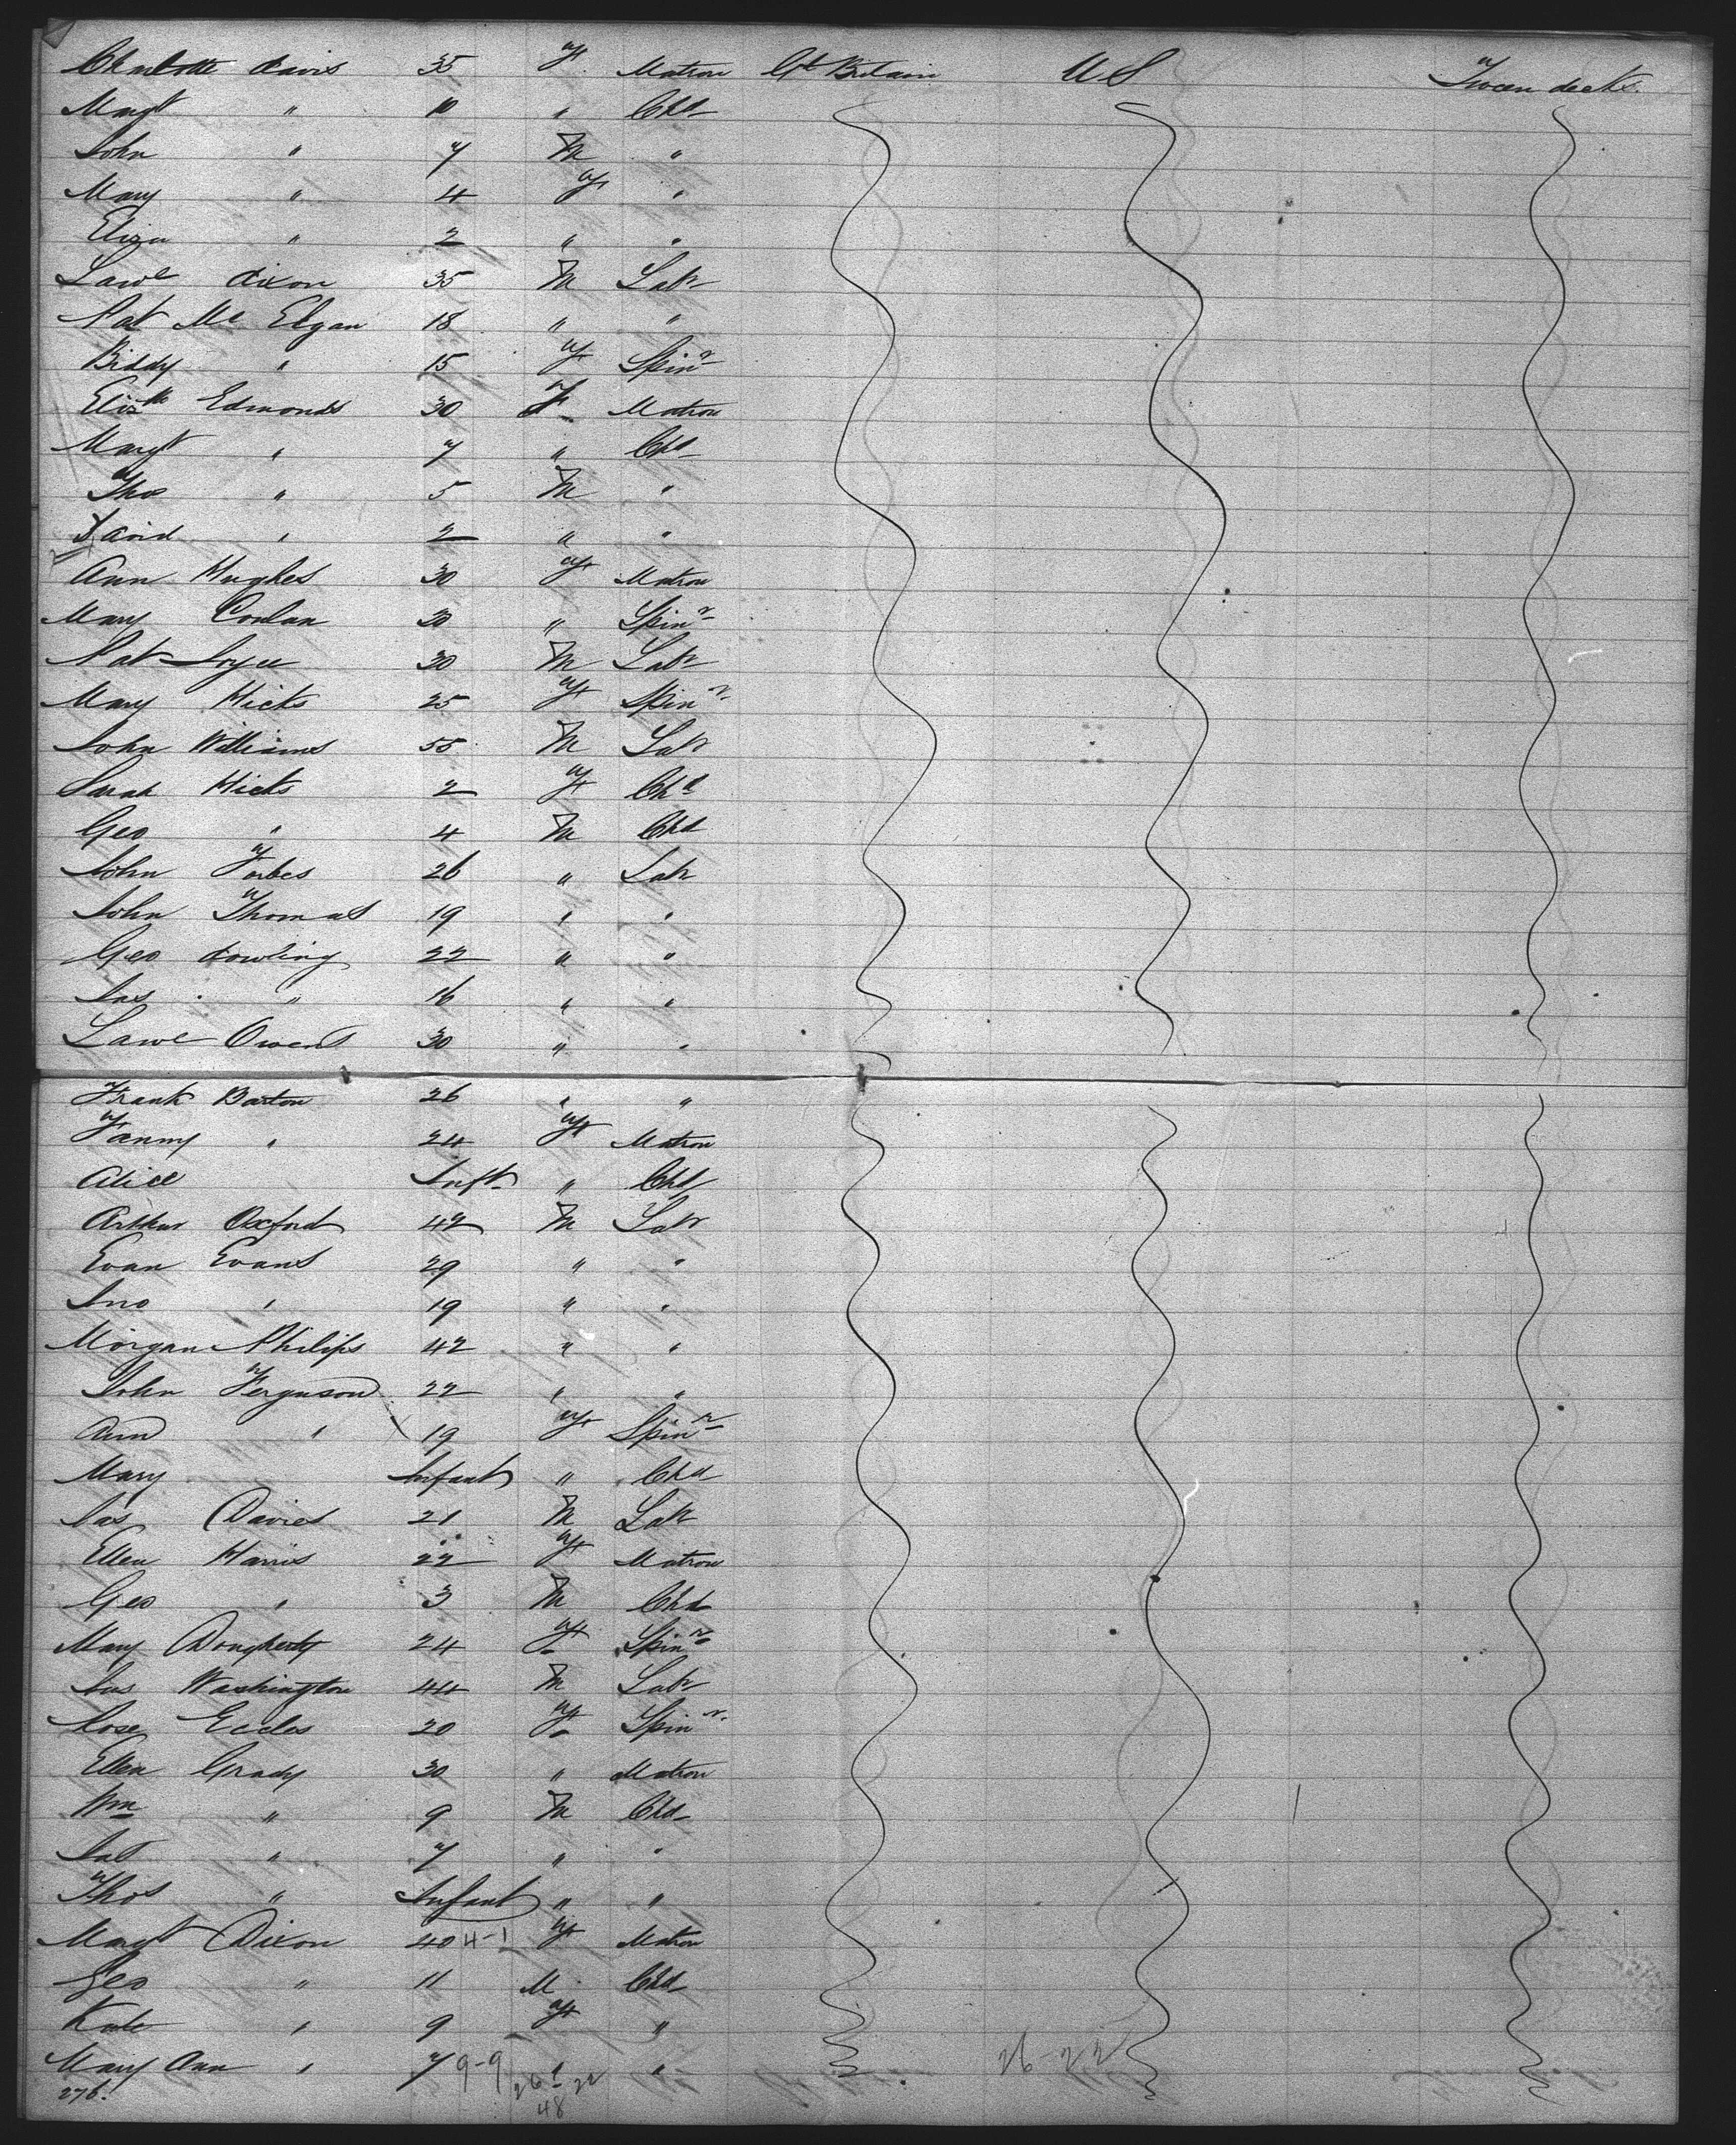 Charlotte Davis 35 F Matron Gt Britain U S Tween decks.
Margt " 10 " Chd
John " 7 M "
Mary " 4 F "
Eliza " 2 " "
Lawe Dixon 35 M Labr
Pat Mc Elgan 18 " "
Biddy " 15 F Spinr
Elizth Edmonds 30 F Matron
Margt " 7 " Chd
Thos " 5 M "
David " 2 " "
Ann Hughes 30 F Matron
Mary Conlan 20 " Spinr
Pat Joyce 30 M Labr
Mary Hicks 25 F Spinr
John Williams 55 M Labr
Sarah Hicks 2 F Chd
Geo " 4 M Chd
John Forbes 26 " Labr
John Thomas 19 " "
Geo Dowling 22 " "
Jas " 16 " "
Lawe Owens 30 " "
Frank Barton 26 " "
Fanny " 24 F Matron
Alice Inft " Chd
Arthur Oxford 42 M Labr
Evan Evans 29 " "
Jno " 19 " "
Morgan Philips 42 " "
John Ferguson 22 " "
Ann " 19 F Spinr
Mary Infant " Chd
Jas Davies 21 M Labr
Ellen Harris 22 F Matron
Geo " 3 M Chd
Mary Dougherty 24 F Spinr
Jas Washington 44 M Labr
Rose Eccles 20 F Spinr
Ellen Grady 30 " Matron
Wm " 9 M Chd
Jas " 7 " "
Thos " Infant " "
Margt Dixon 40 4-1 F Matron
Geo " 11 M Chd
Kate " 9 F "
Mary Ann " 7 9-9 " " 26-22
276. 26-22
48